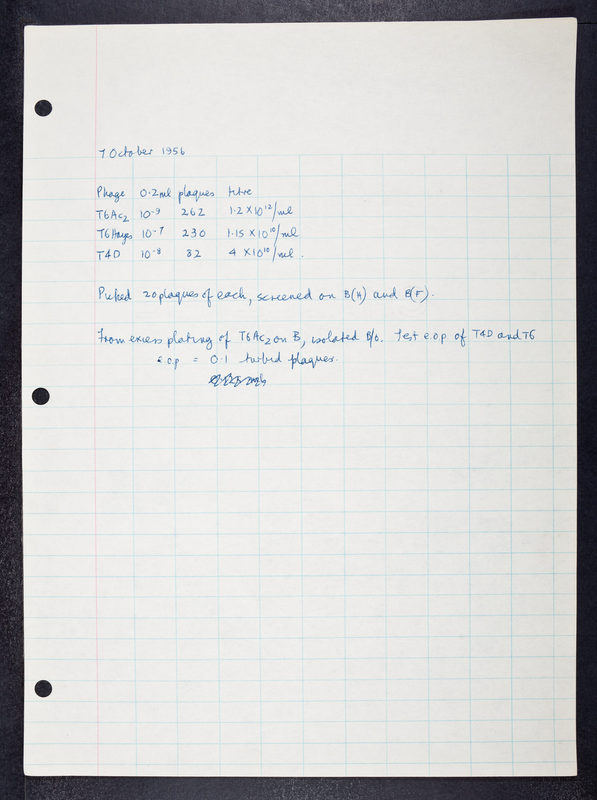 7 October 1956
Phage 0.2ml plaques titre
T6Ac₂ 10⁻⁹ 262 1.2 × 10¹²/ml
T6Hayes 10⁻⁷ 230 1.15 × 10¹⁰/ml
T4D 10⁻⁸ 82 4 × 10¹⁰/ml.
Picked 20 plaques of each, screened on B(H) and B(F).
From excess plating of T6Ac₂ on B, isolated B/6. Test e.o.p. of T4D and T6
e.o.p = 0.1 turbid plaques.